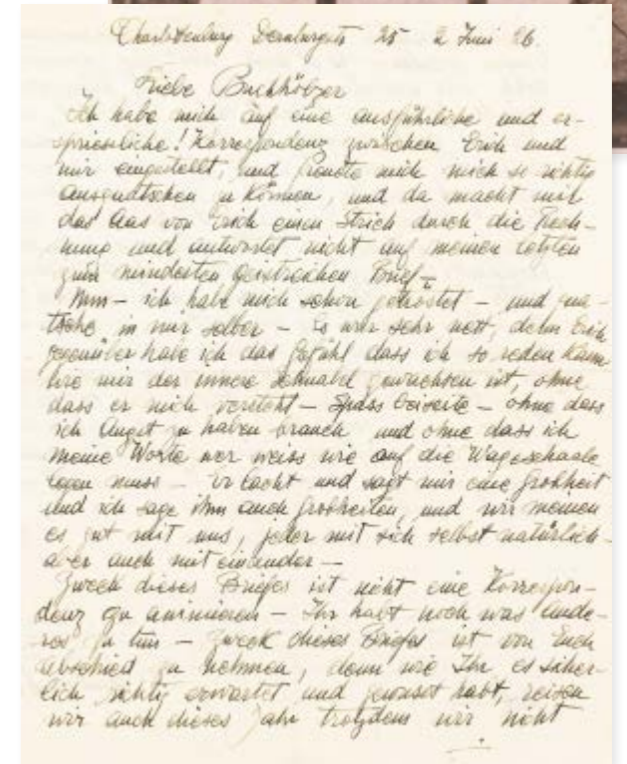 Charlottenburg Dernburgstr 25 2 Juni 26.
Liebe Buchhölzer
Ich habe mich auf eine ausführliche und er-
spriessliche! Korrespondenz zwischen Erich und
mir eingestellt, und freute mich mich so richtig
ausquatschen zu können, und da macht mir
das Aas von Erich einen Strich durch die Rech-
nung und antwortet nicht auf meinen letzten
zum mindesten geistreichen Brief –
Nun – ich habe mich schon getröstet – und qua-
tsche in mir selber – Es war sehr nett, denn Erich
gegenüber habe ich das Gefühl dass ich so reden kann
wie mir der innere Schnabel gewachsen ist, ohne
dass er mich versteht – Spass beiseite – ohne dass
ich Angst zu haben brauch und ohne dass ich
meine Worte wer weiss wie auf die Wageschaale
legen muss – Er lacht und sagt mir eine Grobheit
und ich sage ihm auch Grobheiten, und wir meinen
es gut mit uns, jeder mit sich selbst natürlich –
aber auch mit einander –
Zweck dieses Briefes ist nicht eine Korrespon-
denz zu animieren – Ihr habt noch was ande-
res zu tun – Zweck dieses Briefes ist von Euch
abschied zu nehmen, denn wie Ihr es sicher-
lich richtig erwartet und gewusst habt, reisen
wir auch dieses Jahr trotzdem wir nicht